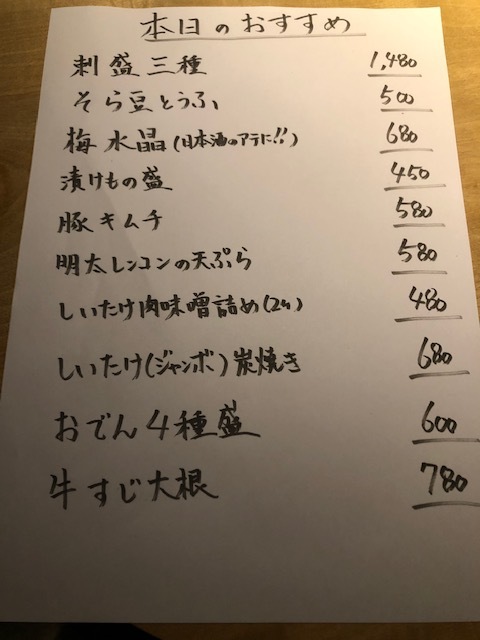 本日のおすすめ
刺盛三種 1,480
そら豆とうふ 500
梅水晶(日本酒のアテに!!) 680
漬けもの盛 450
豚キムチ 580
明太レンコンの天ぷら 580
しいたけ肉味噌詰め(2ケ) 480
しいたけ(ジャンボ)炭焼き 680
おでん4種盛 600
牛すじ大根 780